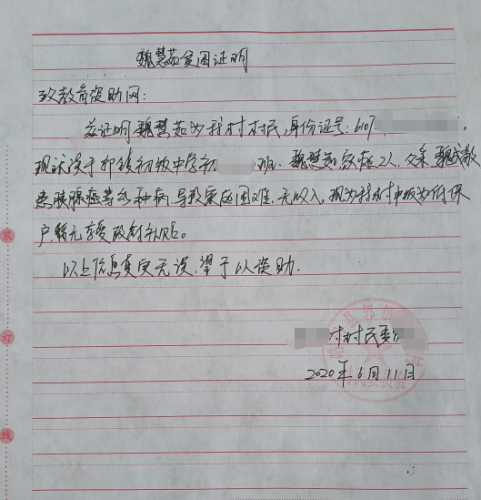 魏慧茹贫困证明
致教育资助网:
兹证明魏慧茹为我村村民,身份证号:6107
现就读于 镇初级中学初 班。魏慧茹家有2人,父亲魏成教
患胰腺癌等多种病,导致家庭困难,无收入,现为我村申报为低保
户,暂无享受政府补贴。
以上信息真实无误,望予以资助。
村村民委
2020年6月11日
装
订
线